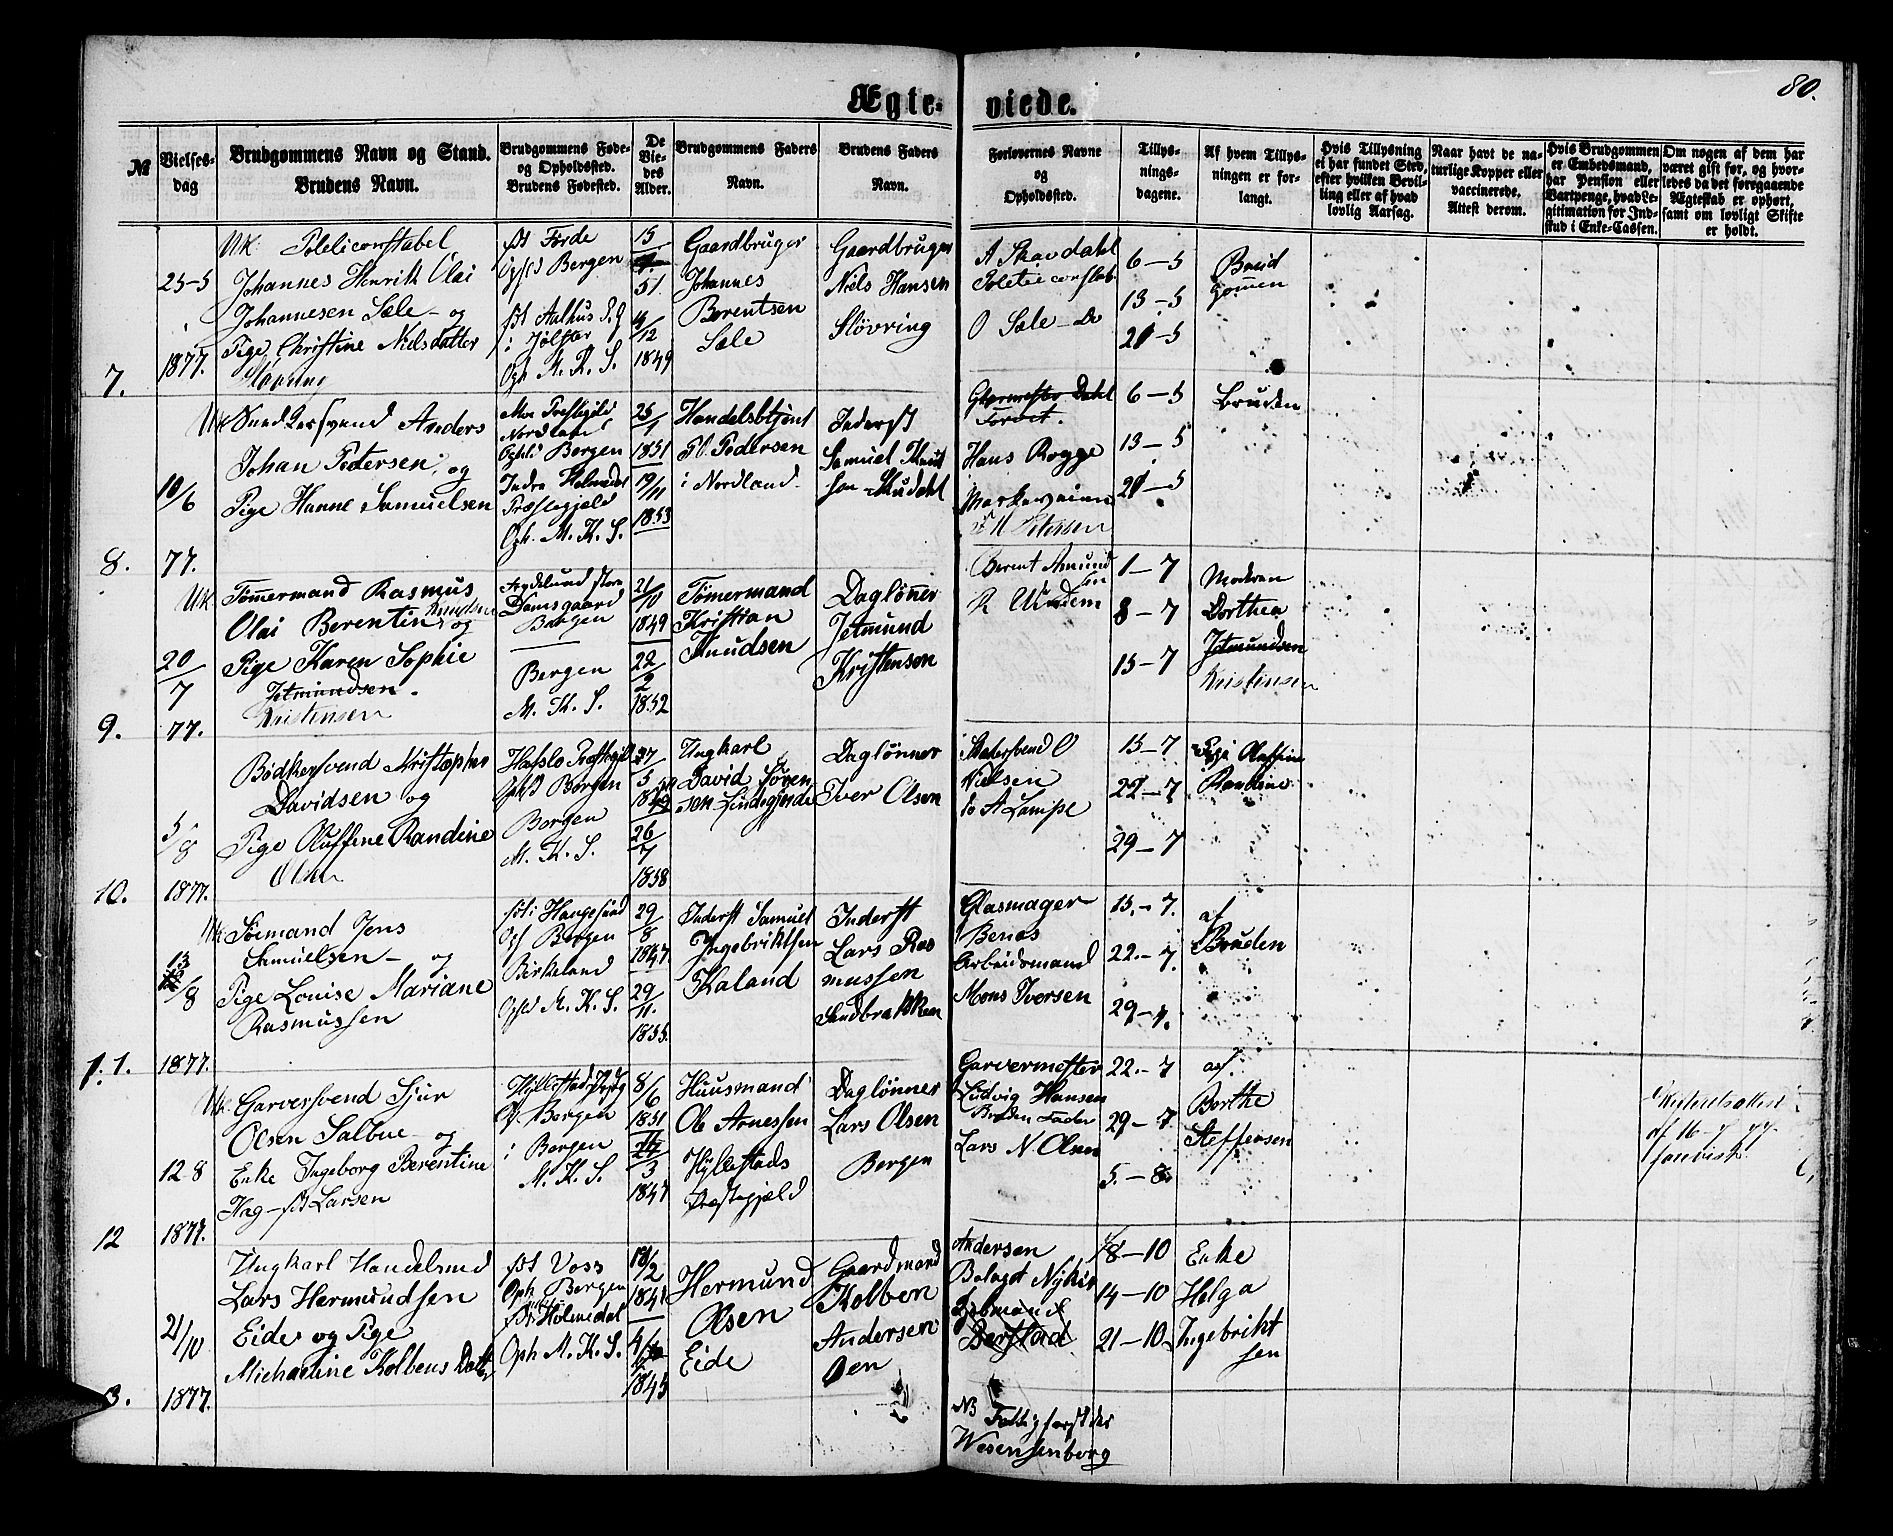 80.
Ægte- viede.
№
Vielses-
dag
Brudgommens Navn og Stand.
Brudens Navn.
Brudgommens Føde-
og Opholdssted.
Brudens Fødested.
De
Vie-
des
Alder.
Brudgommens Faders
Navn.
Brudens Faders
Navn.
Forlovernes Navne
og
Opholdssted.
Tillys-
nings-
dagene.
Af hvem Tillys-
ningen er for-
langt.
Hvis Tillysning
ei har fundet Sted,
efter hvilken Bevil-
ling eller af hvad
lovlig Aarsag.
Naar havt de na-
turlige Kopper eller
vaccinerede.
Attest derom.
Hvis Brudgommen
er Embedsmand,
har Pension eller
Vartpenge, hvad Le-
gitimation for Ind-
skud i Enke-Cassen.
Om nogen af dem har
været gift før, og hvor-
ledes da det foregaaende
Ægteskab er ophørt,
samt om lovligt Skifte
er holdt.
7.
25-5
1877.
Uk: Politiconstabel
Johannes Henrik Olai
Johannesen Sæle - og
Pige Christine Nielsdatter
fst Førde
Opholds Bergen
fst Aalhus P. G
i Jølster
Oph M. K. S.
15
51
4/12
1849
Gaardbruger
Johannes
Berentsen
Sæle
Gaardbruger
Niels Hansen
Sløvring
A Skavdahl
Politieconstab
O Sæle - Do
6-5
13-5
21-5
Brud
gommen
8.
10/6
77.
Uk Anders
Johan Pedersen, og
Pige Hanne Samuelsen
Nordland
Opholds Bergen
Indre Holmedal
Præstegjeld
Oph. M. K. S.
25/1
1851
19/11
1853
Handelsbtjent
P. Pedersen
i Nordland
Inderst
Samuel Knut
sen
Glarmester Dahl
Torvet.
Hans Rogge
Markeveien
6-5
13-5
21-5
Bruden
9.
20/7
77.
Uk Tømmermand Rasmus
Olai Berentin Knudsen og
Pige Karen Sophie
Jetmundsen.
Kristensen
Damsgaard
Bergen
Bergen
M. K. S.
21/10
1849
22/2
1852
Tømermand
Kristian
Knudsen
Dagløner
Jetmund
Kristensen
Berent Amund
sen
1-7
8-7
15-7
Moderen
Dorthea
Jetmundsen
Kristensen
10.
5/8
1877.
Bødkersvend Kristopher
Davidsen og
Pige Oluffine Randine
Olsen
Hafslo Præstegjeld
Ophld Bergen
Bergen
M. K. S.
27/5
26/7
1858
Ungkarl
David Søren
sen
Dagløner
Iver Olsen
Nielsen
Do A Lampe
15-7
22-7
29-7
Pige Oluffine
Randine
11.
13/8
1877.
Uk Sømand Jens
Samuelsen - og
Pige Louise Mariane
Rasmussen
Haugesund
Bergen
Birkeland
Ophld M. K. S.
29/8
1847
29/11.
1855.
Inderst Samuel
Ingebriktsen
Kaland
Inderst
Lars Ras
mussen
Sandbrakken
Glasmager
Arbeidsmand
Mons Iversen
15.-7.
22.-7.
29-7.
af
Bruden
12
12-8
1877.
Uk. Garversvend Sjur
Olsen Salbue - og
Enke Ingeborg Berentine
Hag - fst Larsen
Bergen
i Bergen
M. K. S.
8/6
1851
3
1847
Huusmand
Ole Arnessen
Hyllestads
Præstegjæld
Dagløner
Lars Olsen
Bergen
Garvermester
Ludvig Hansen
Bruden Fader
Lars N Olsen
22.-7
29-7
5.-8.
af
Berthe
Steffensen
af 16-7-77
3.
21/10
1877.
Ungkarl Handelsmd
Lars Hermundsen
Eide og Pige
Michaeline Kolbens Datt
fst Voss
Oph Bergen
Holmedal
Oph M. K. S.
18/2
1845
Hermund
Olsen
Eide
Gaardmand
Kolben
Andersen
Øen
Andersen
NB
Wesenfenborg
8-10
14-10
21-10
Enke
Helga
Ingebrikt
sen